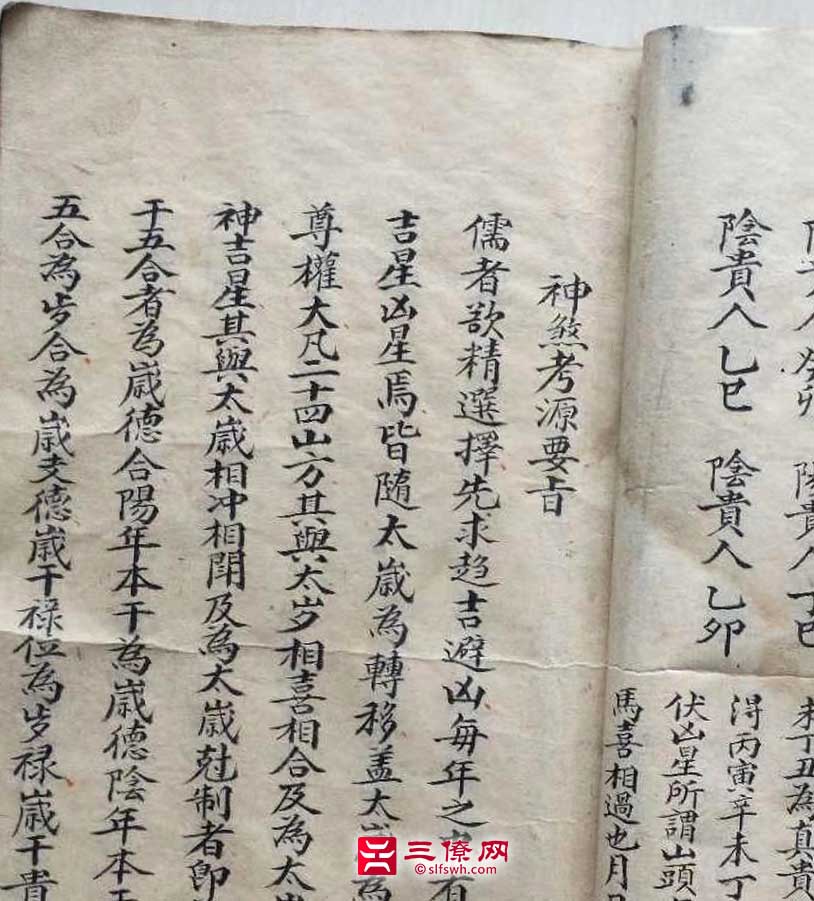 貴人癸卯 陽貴人丁巳
陰貴人乙巳 陰貴人乙卯
未丁丑為真貴
得丙寅辛未丁
伏凶星所謂山頭
馬喜相過也月
神煞考源要旨
儒者欲精選擇先求趋吉避凶每年之 有
吉星凶星焉皆隨太歲為轉移蓋太歲為
尊權大凡二十四山方其與太岁相喜相合及為太
神吉星其與太歲相冲相鬪及為太歲尅制者即
干五合者為歲德合陽年本干為歲德陰年本干
五合為岁合為歲支德歲干禄位為岁禄歲干貴
三僚网
slfswh.com